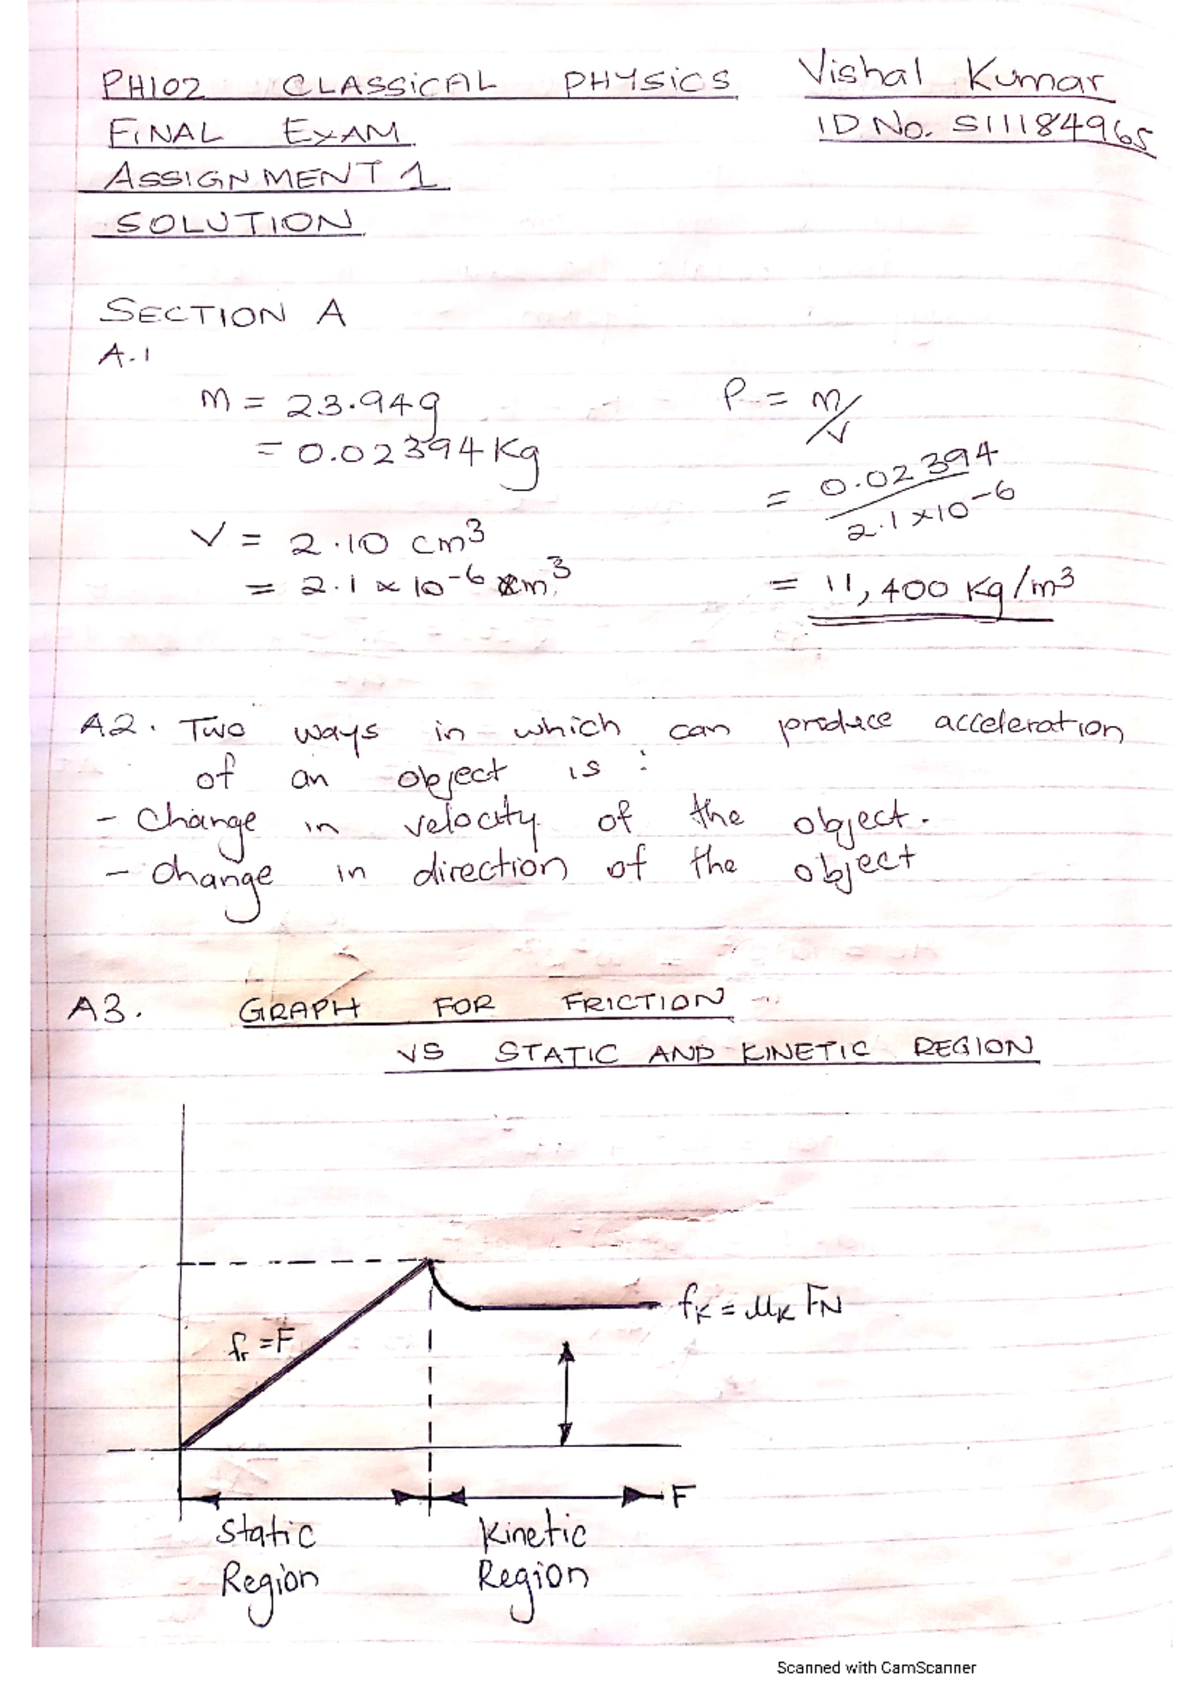 PH102 CLASSICAL PHYSICS Vishal Kumar
FINAL EXAM. ID No. S11184965
ASSIGNMENT 1
SOLUTION
SECTION A
A.1
m = 23.94g
= 0.02394 Kg
V = 2.10 cm³
= 2.1 × 10⁻⁶ m³
P = m/V
= 0.02394 / 2.1 × 10⁻⁶
= 11,400 Kg/m³
A2. Two ways in which can produce acceleration
of an object is :
- Change in velocity of the object.
- Change in direction of the object
A3. GRAPH FOR FRICTION
VS STATIC AND KINETIC REGION
fr = F
fK = μK FN
F
Static Region
Kinetic Region
Scanned with CamScanner